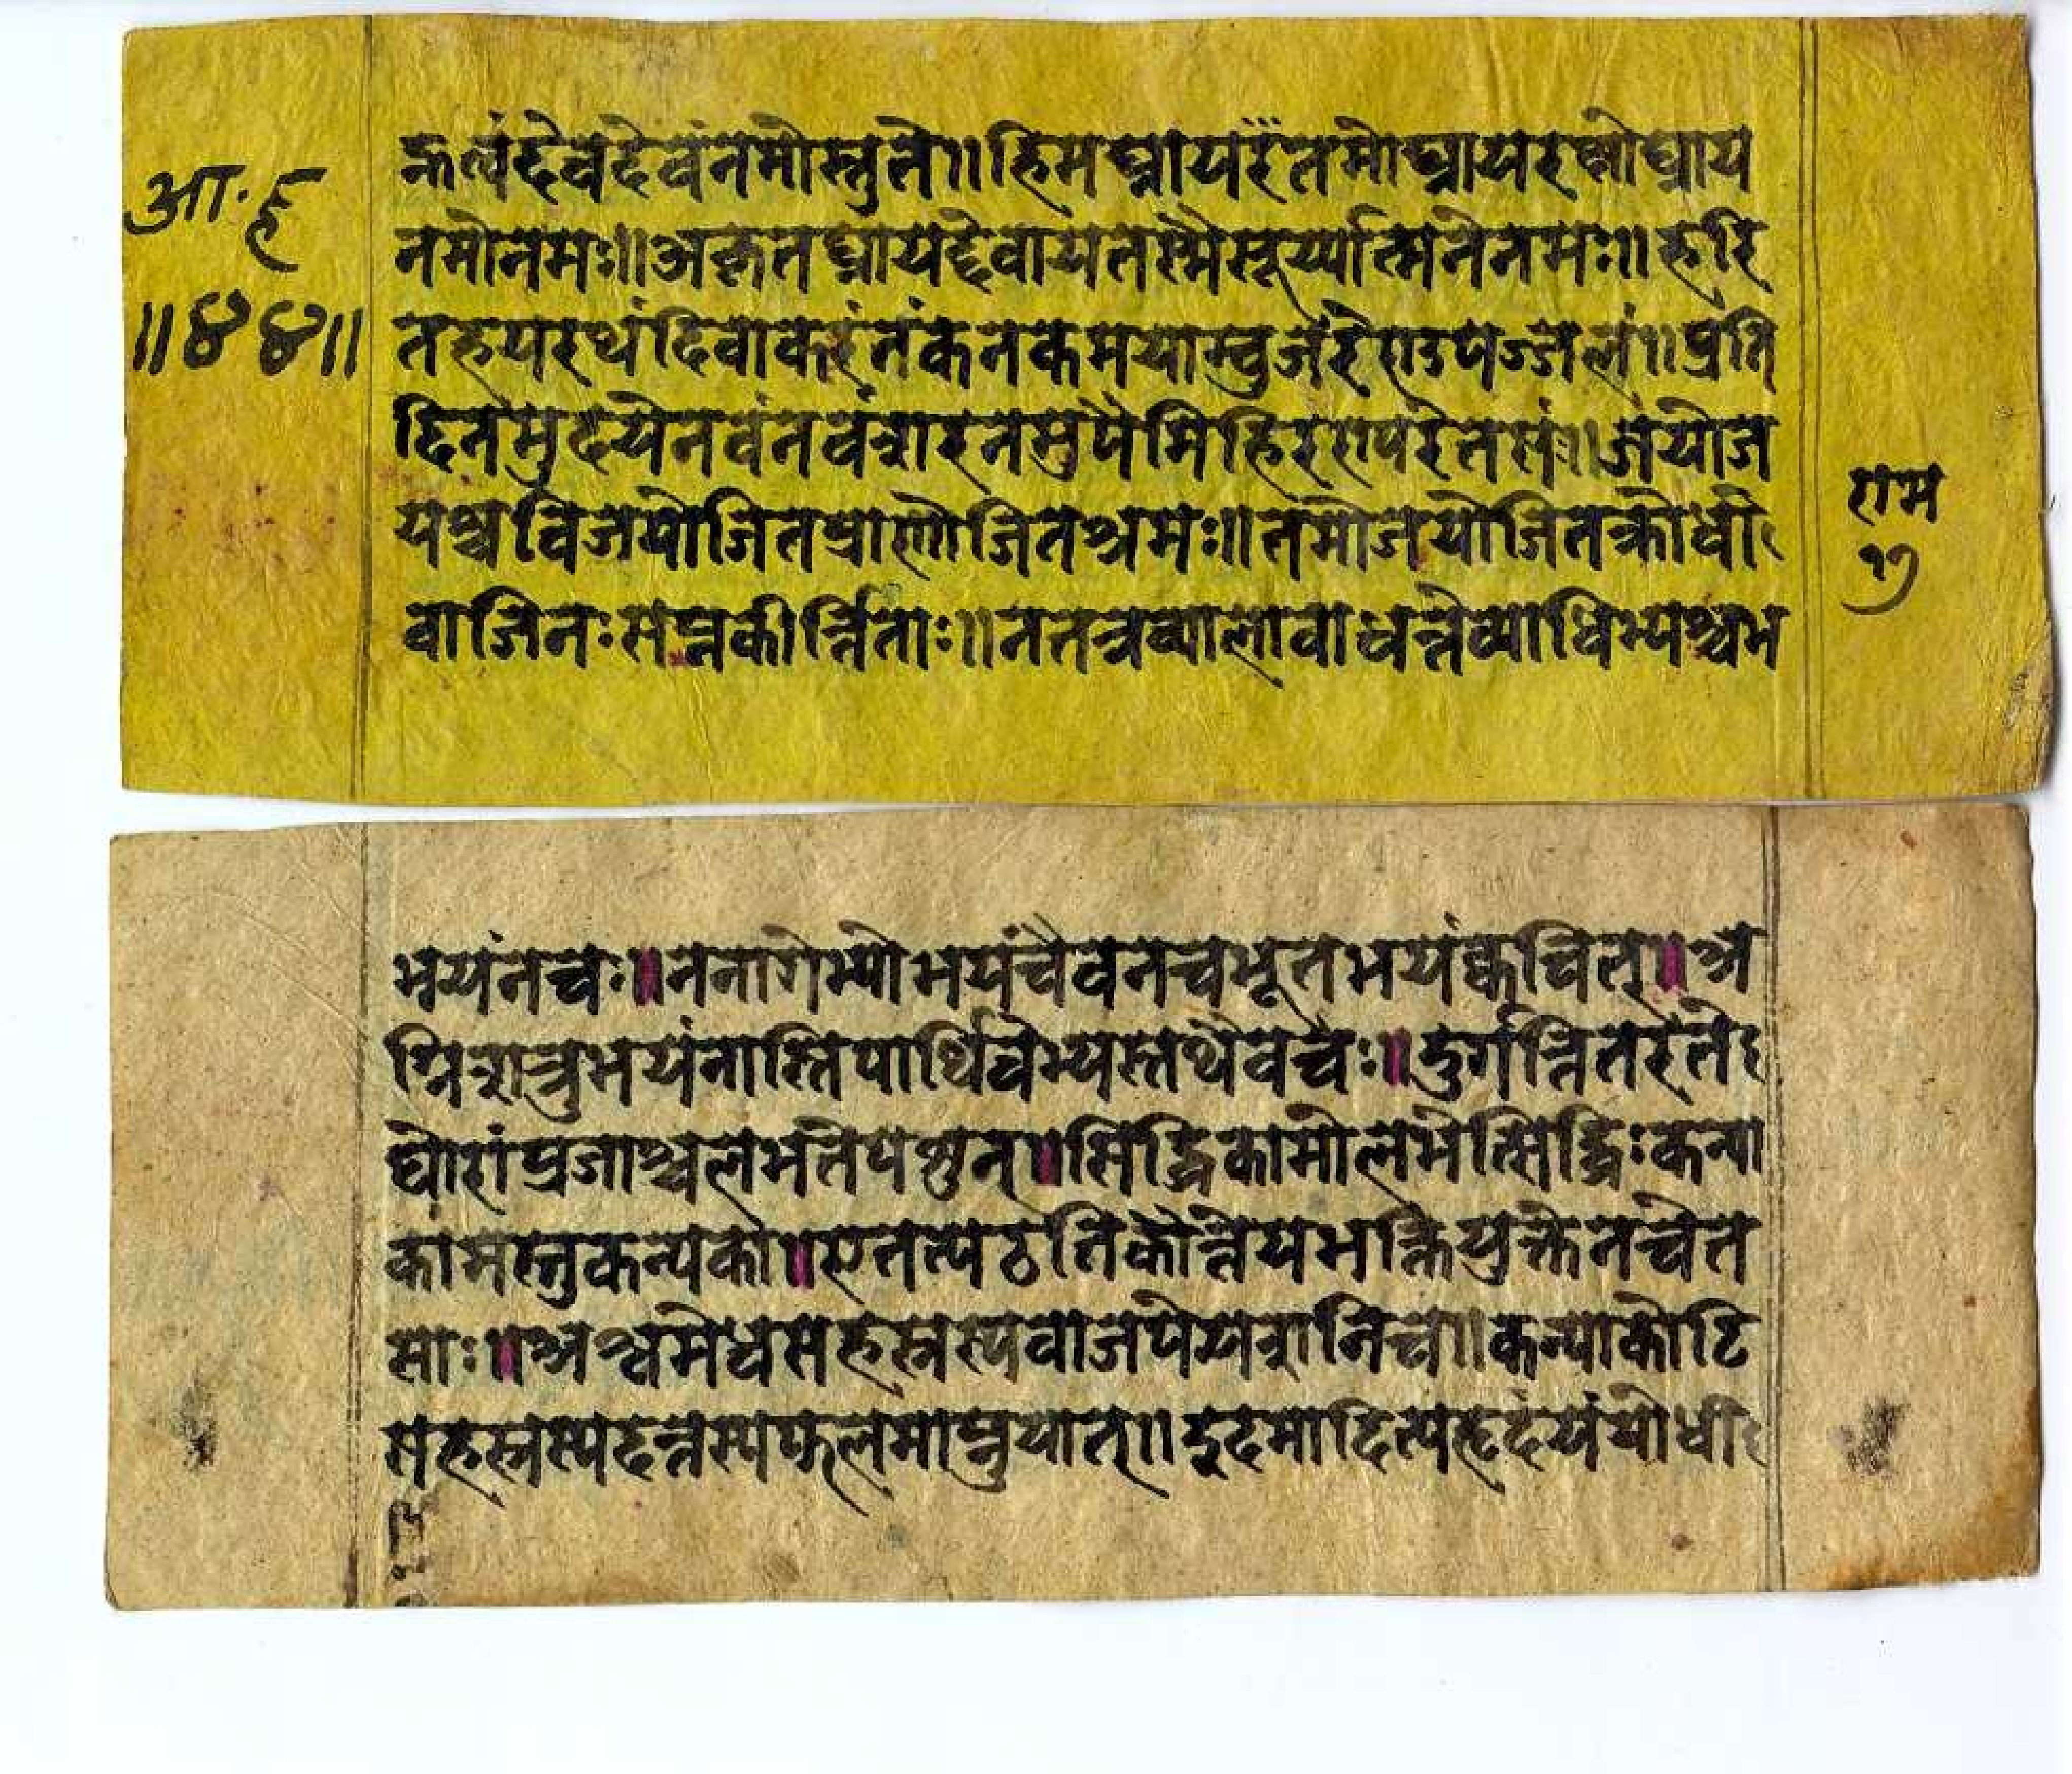 आ·हृ
॥४४॥
क्रत्वंदेवदेवंनमोस्तुते॥हिमघ्नायरैतमोघ्नायरक्षोघ्नाय
नमोनमः॥अकृतघ्नायदेवायतस्मैसूर्य्यात्मनेनमः॥हरि
तहयरथंदिवाकरंतंकनकमयाम्बुजंरेणुपिञ्जलं॥प्रति
दिनमुदयेनवंनवंशरनमुपैमिहिरण्यरेतसं॥जयोज
यश्चविजयोजितप्राणोजितश्रमः॥तमोजयोजितक्रोधी
वाजिनःसप्तकीर्त्तिताः॥नतत्रव्यालावाधन्तेव्याधिभ्यश्चभ
राम
१७
भयंनचः॥ननागेभ्योभयंचैवनचभूतभयंक्वचित्॥अ
ग्निशत्रुभयंनास्तिपार्थिवेभ्यस्तथैवचः॥दुर्गन्तितरते
घोरांप्रजाश्चलभतेपशुन्॥सिद्धिकामोलभेत्सिद्धिःकन्या
कामस्तुकन्यका॥एतत्पठतिकौन्तेयभक्तियुक्तेनचेत
साः॥अश्वमेधसहस्रस्यवाजपेयशतानिच॥कन्याकोटि
सहस्रस्यदत्तस्यफलमाप्नुयात्॥इदमादित्यहृदयंयोधी